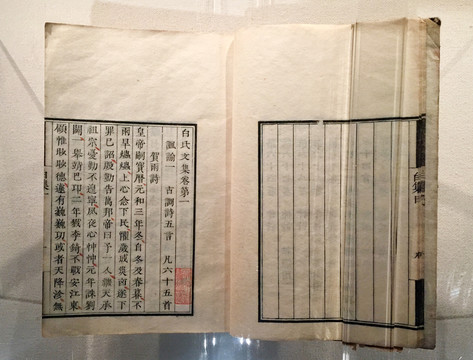 白氏文集卷第一
諷諭一 古調詩五言 凡六十五首
賀雨詩
皇帝嗣寶曆元和三年冬自冬及春暮不
雨旱爞爞上心念下民懼歲成災凶遂下
罪己詔殷勤告萬邦帝曰予一人繼天承
祖宗憂勤不遑寧夙夜心忡忡元年誅劉
闢一舉靖巴卭二年戮李錡不戰安江東
顧惟眇眇德遽有巍巍功或者天降沴無